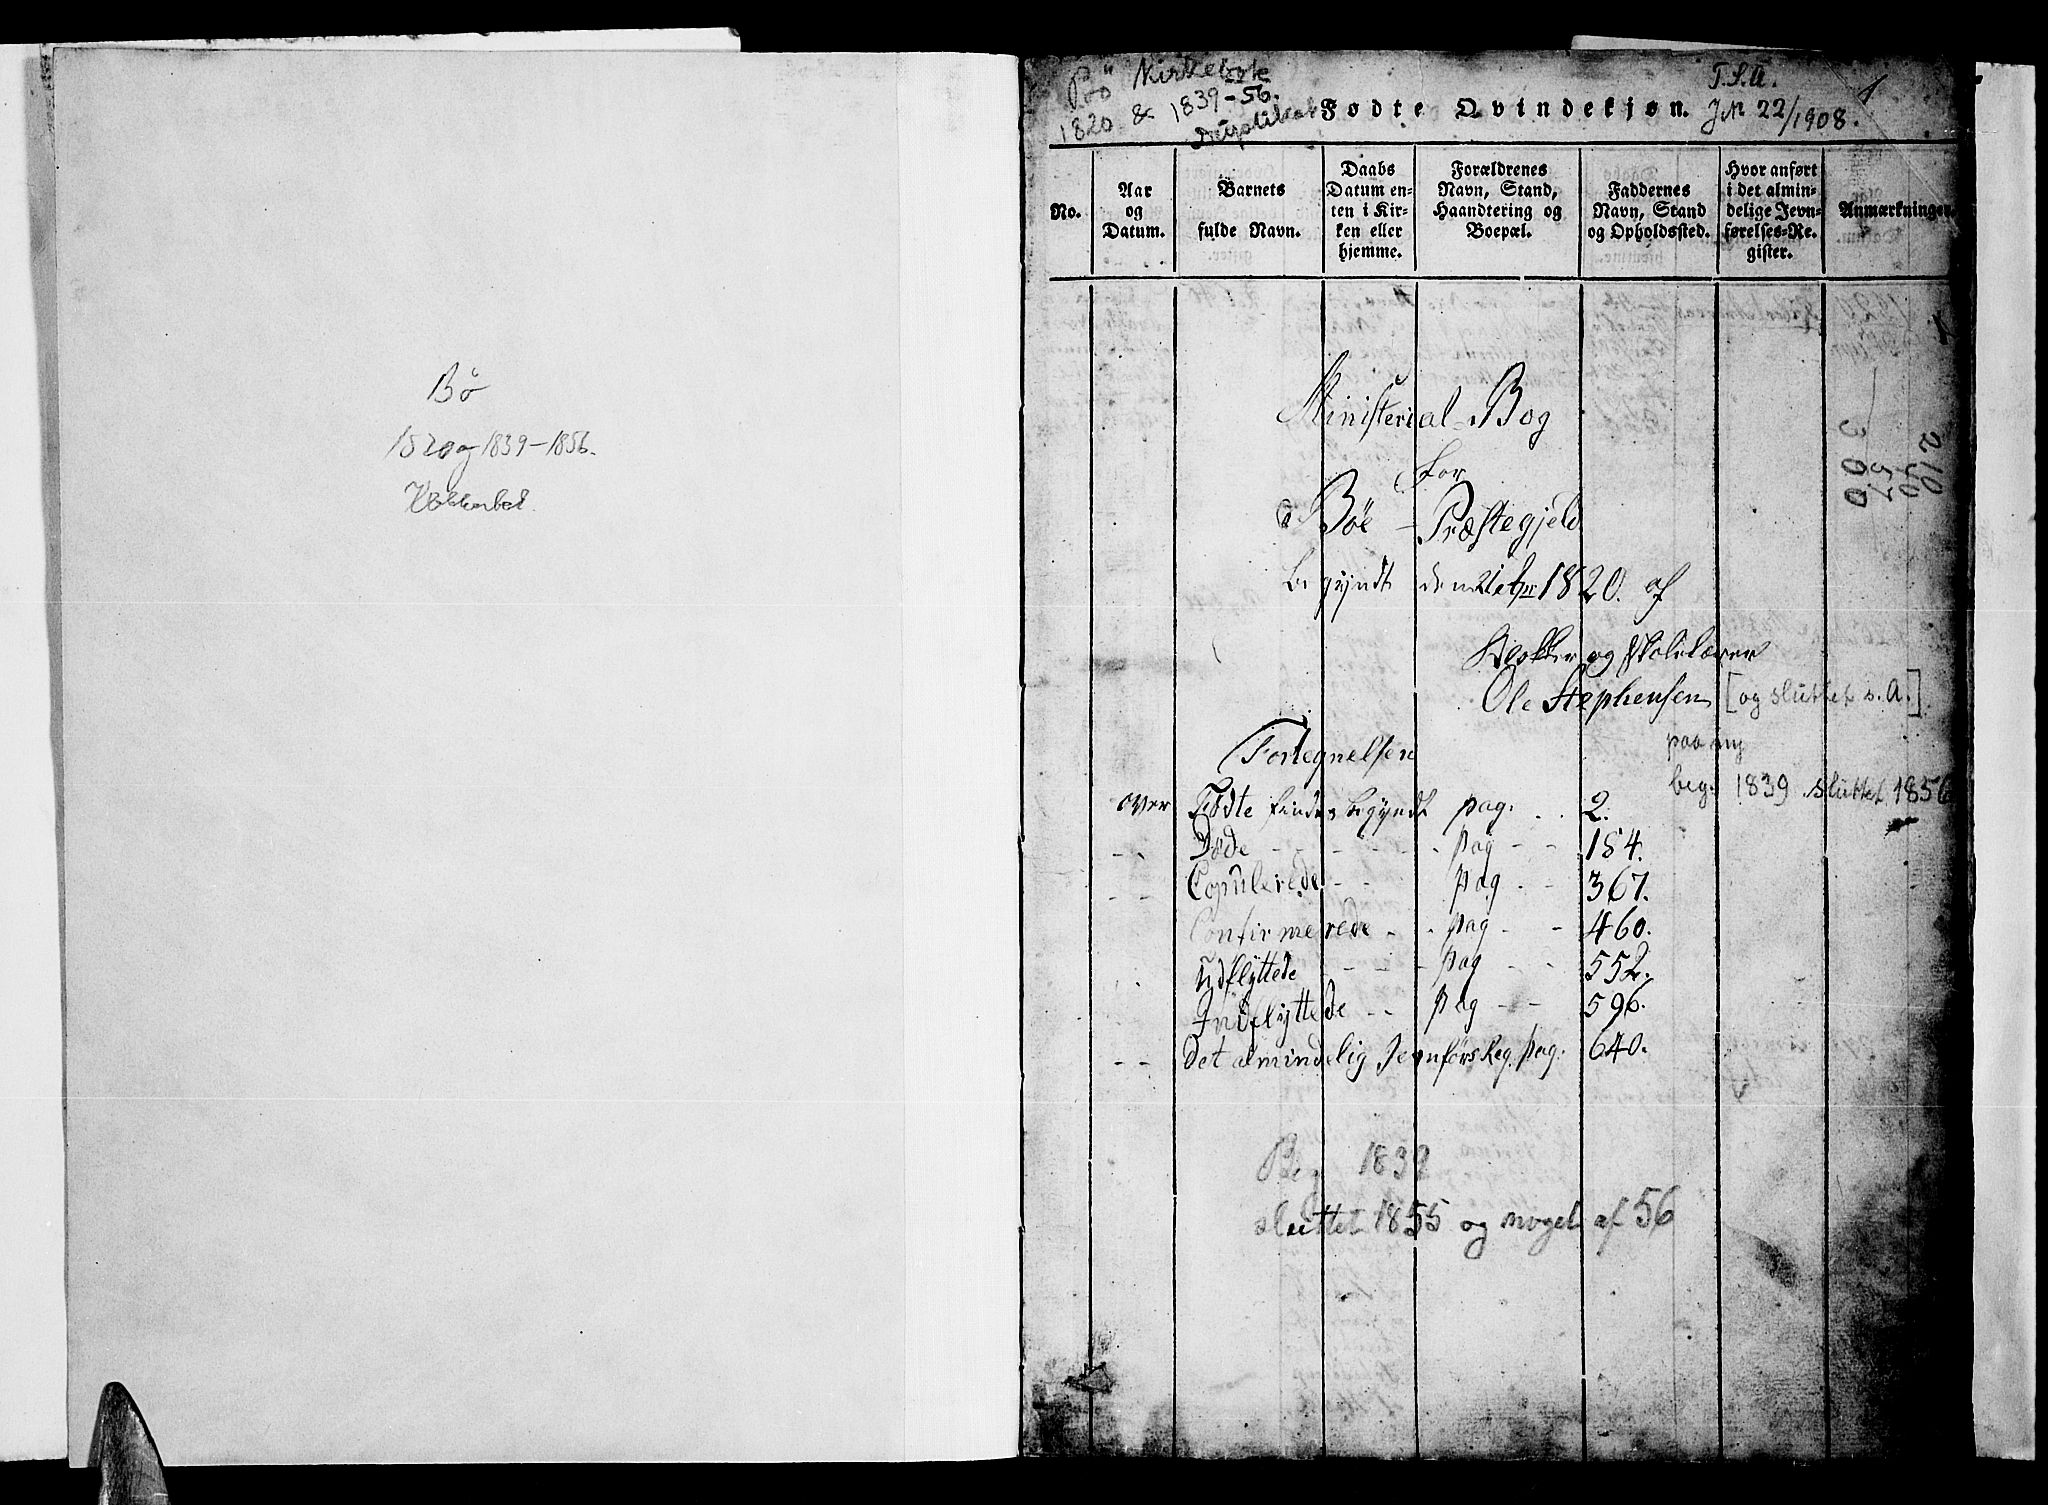 Bø
1820 og 1839-1856.
Klokkerbok.
Bö Kirkebok
1820 & 1839-56.
Duplikat
T.S.A.
JN 22/1908.
1
Fødte Qvindekjøn.
No.
Aar
og
Datum.
Barnets
fulde Navn.
Daabs
Datum en-
ten i Kir-
ken eller
hjemme.
Forældrenes
Navn, Stand,
Haandtering og
Boepæl.
Faddernes
Navn, Stand
og Opholdssted.
Hvor anført
i det almin-
delige Jevn-
førelses-Re-
gister.
Anmærkninger.
Ministerial-Bog
for
Bøe - Præstegjeld
begyndt den 1820. af
Klokker og Skolelærer
Ole Stephensen [og sluttet s. A.]
paa ny
beg. 1839 sluttet 1856
210
40
57
300
Fortegnelsen
over Fødte findes begyndt pag. .. 2.
-- Døde - - - - - - pag - - 184.
-- Copulerede - - pag . - 367.
Confirmerede - . pag - - 460.
Udflyttede - - - - pag - - 552.
Indflyttede - - pag - - 596.
-- Det almindelig Jevnførs Reg. pag. 640.
Beg 1839
sluttet 1855 og noget af 56